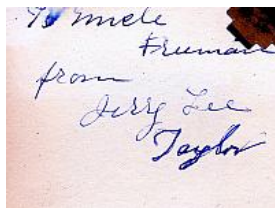 To Uncle
Freeman
from
Jerry Lee
Taylor